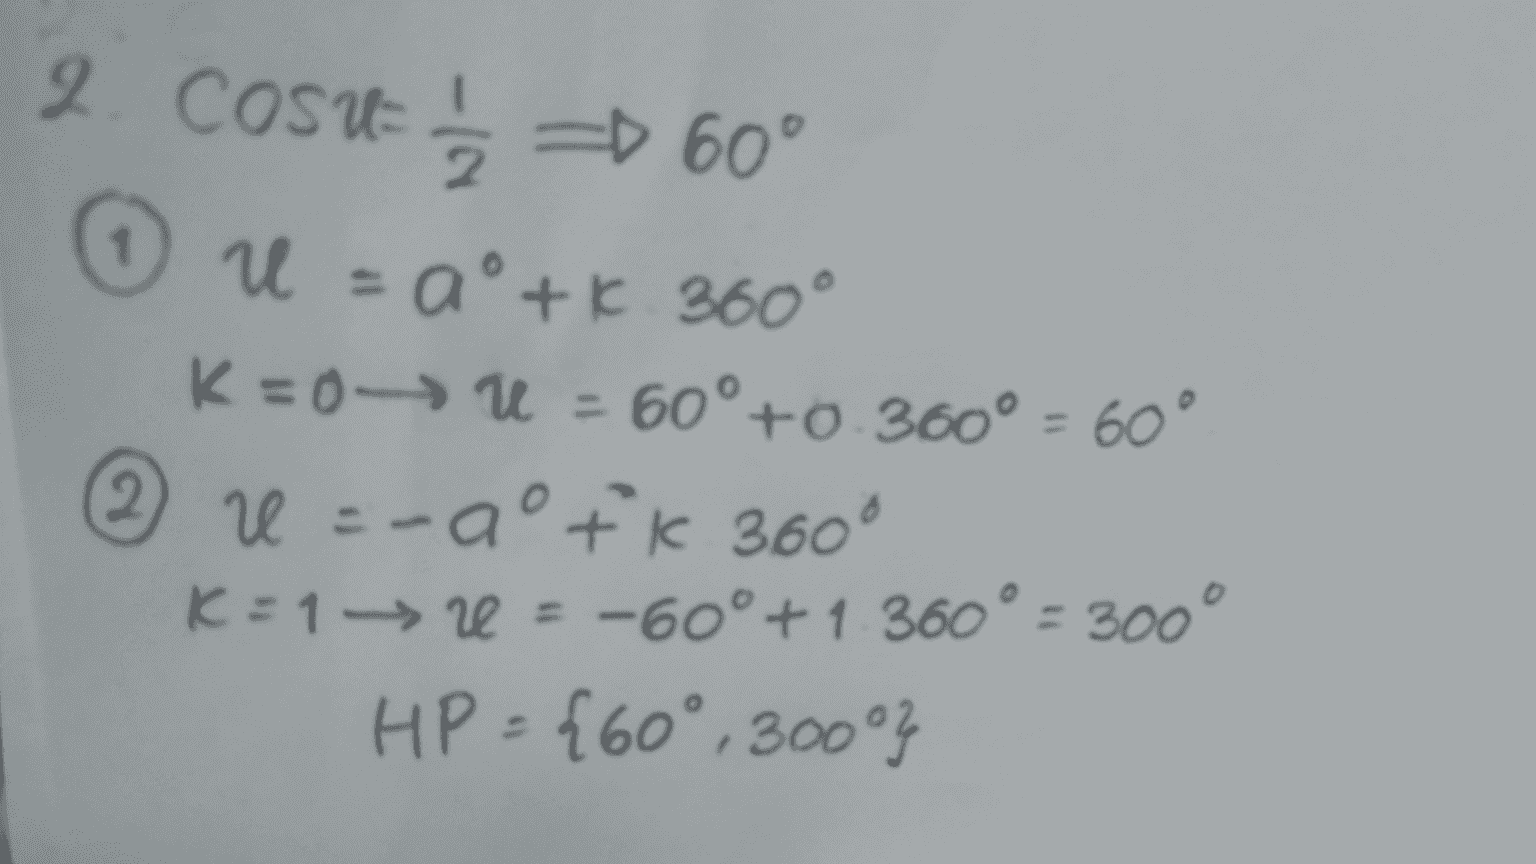 2. COS x = 1/2 ⇒ 60°
① x = a° + k . 360°
K = 0 → x = 60° + 0 . 360° = 60°
② x = -a° + k . 360°
K = 1 → x = -60° + 1 . 360° = 300°
HP = {60°, 300°}